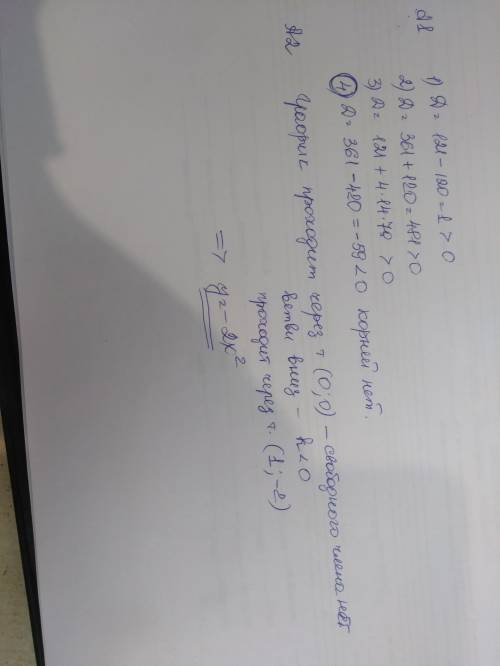 А1
1) D = 121 - 120 = 1 > 0
2) D = 361 + 120 = 481 > 0
3) D = 121 + 4·14·79 > 0
4) D = 361 - 420 = -59 < 0 корней нет.
А2 График проходит через т (0; 0) - свободного члена нет
ветви вниз - k < 0
проходит через т. (1; -2)
=> y = -2x²